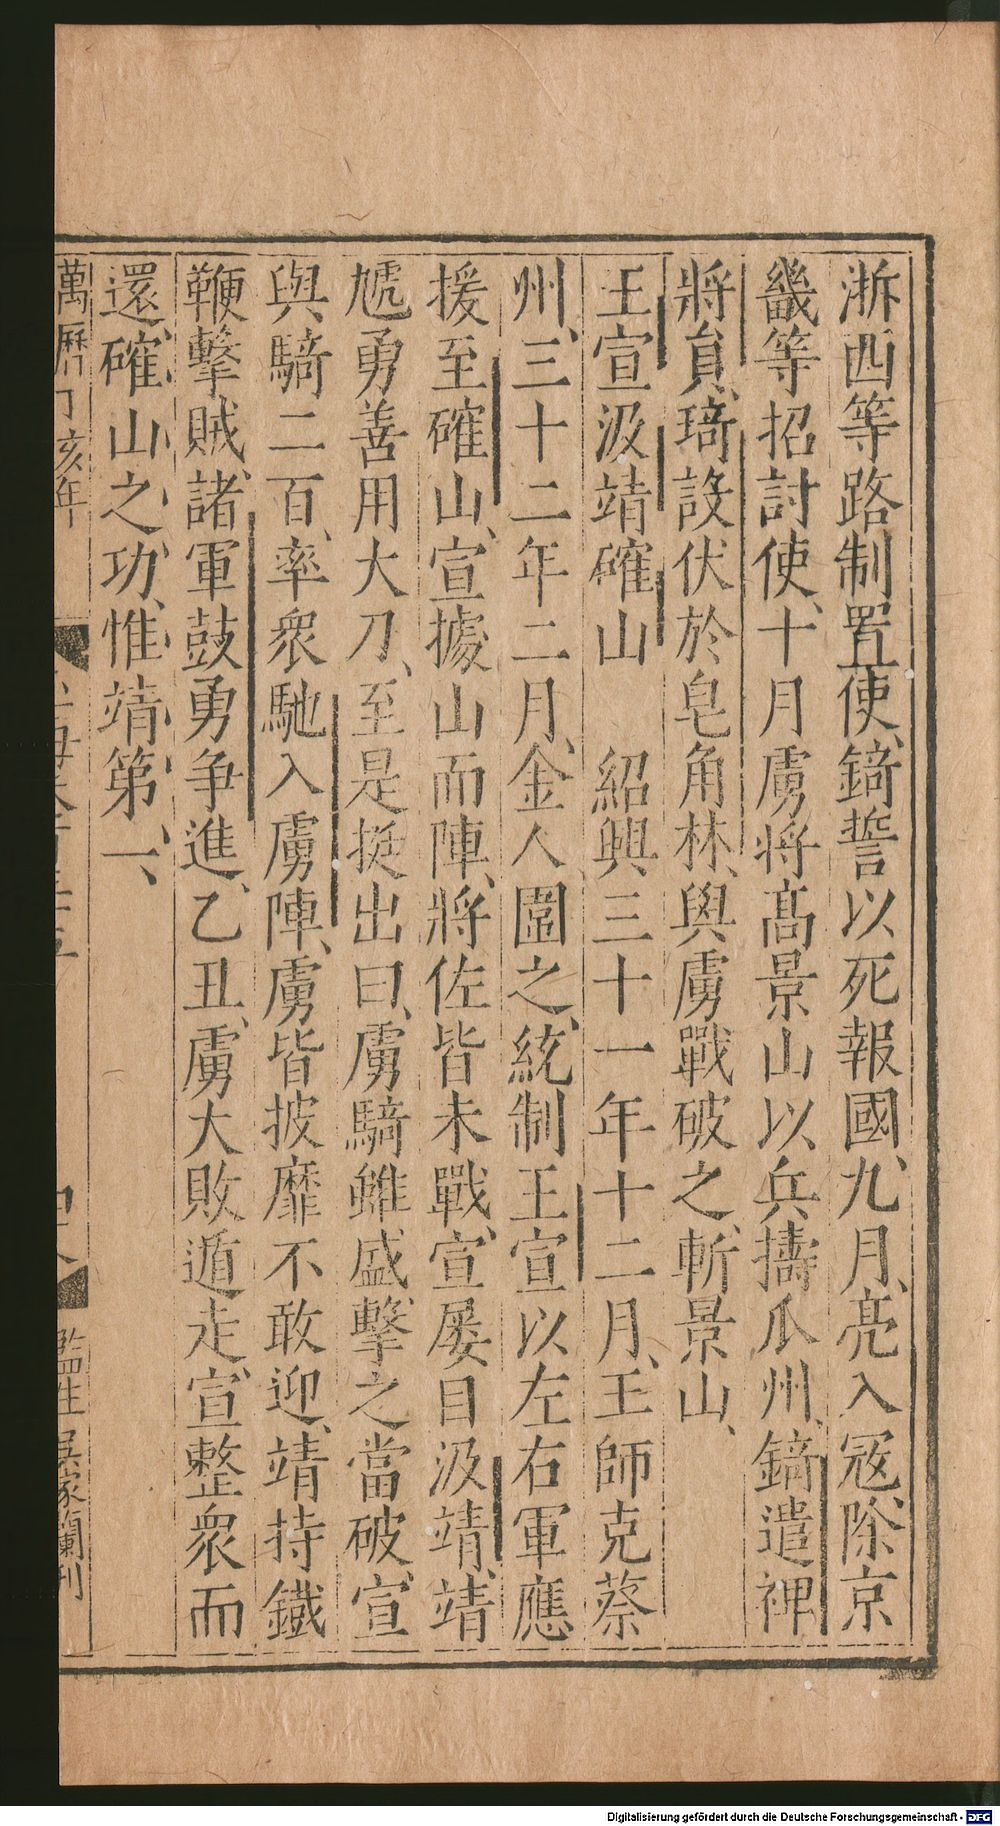 浙西等路制置使、錡誓以死報國、九月、亮入冦、除京
畿等招討使、十月虜将髙景山以兵擣瓜州、錡遣裨
將貟、琦設伏於皂角林、與虜戰破之、斬景山、
王宣汲靖確山　紹興三十一年十二月、王師克蔡
州、三十二年二月、金人圍之、統制王宣以左右軍應
援至確山、宣據山而陣、將佐皆未戰、宣屡目汲靖、靖
虓勇善用大刀、至是挺出曰、虜騎雖盛、擊之當破、宣
與騎二百、率衆馳入虜陣、虜皆披靡不敢迎、靖持鐵
鞭擊賊、諸軍鼓勇争進、乙丑、虜大敗遁走、宣整衆而
還、確山之功、惟靖第一、
萬曆丁亥年
監生吴家蘭刊
Digitalisierung gefördert durch die Deutsche Forschungsgemeinschaft - DFG